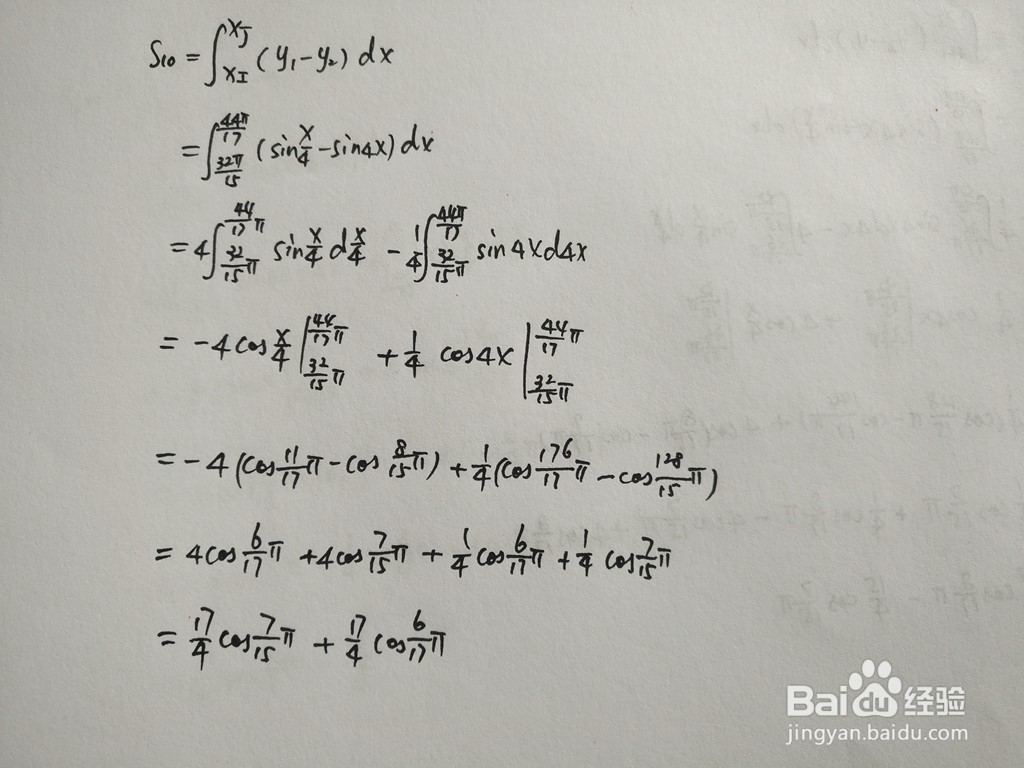 S₁₀ = ∫_{x_I}^{x_J} (y₁ - y₂) dx
= ∫_{32π/15}^{44π/17} (sin x/4 - sin4x) dx
= 4∫_{32/15 π}^{44/17 π} sin x/4 d x/4 - 1/4 ∫_{32/15 π}^{44π/17} sin4xd4x
= -4cos x/4 |_{32/15 π}^{44/17 π} + 1/4 cos4x |_{32/15 π}^{44/17 π}
= -4(cos 11/17 π - cos 8/15 π) + 1/4 (cos 176/17 π - cos 128/15 π)
= 4cos 6/17 π + 4cos 7/15 π + 1/4 cos 6/17 π + 1/4 cos 7/15 π
= 17/4 cos 7/15 π + 17/4 cos 6/17 π
Baidu经验
jingyan.baidu.com